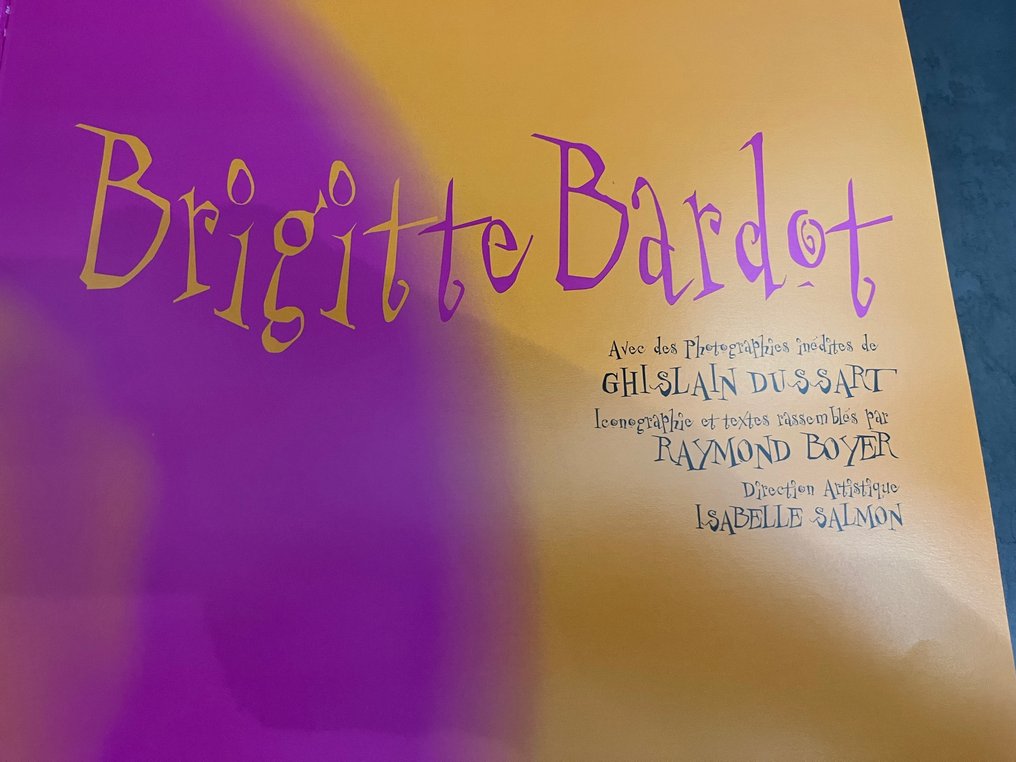 Brigitte Bardot
Avec des Photographies inédites de
GHISLAIN DUSSART
Iconographie et textes rassemblés par
RAYMOND BOYER
Direction Artistique
ISABELLE SALMON